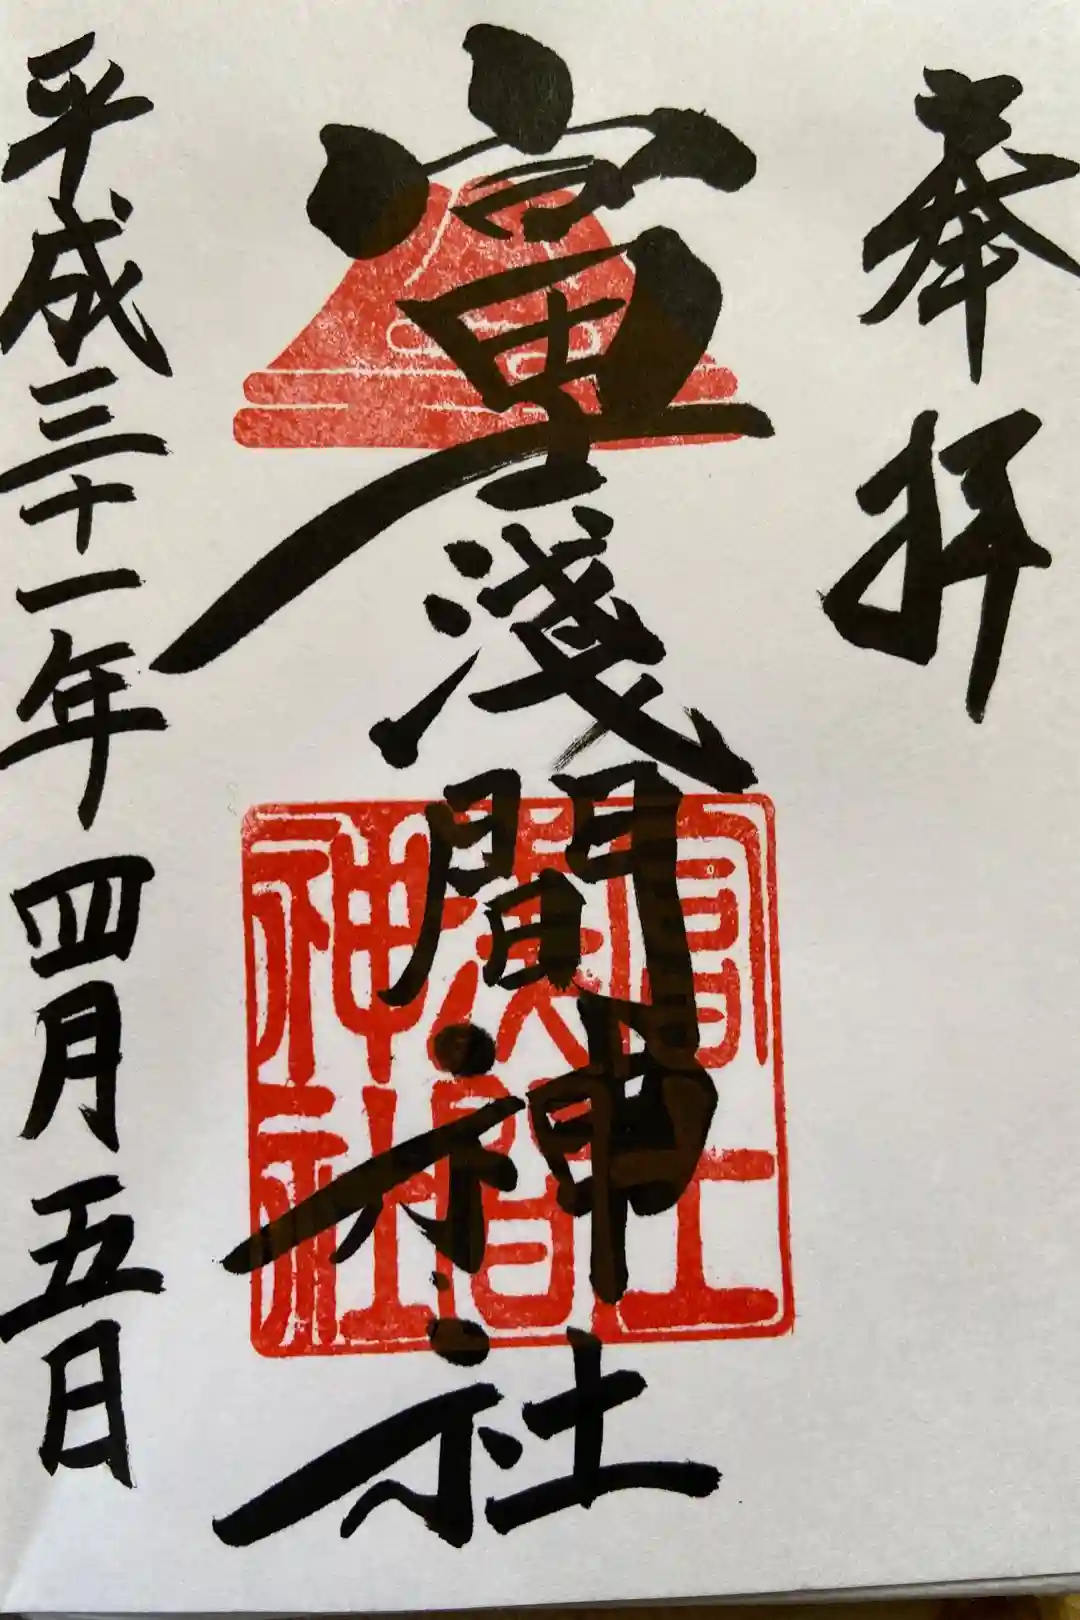 奉拝
富士淺間神社
富士淺間神社
平成三十一年四月五日